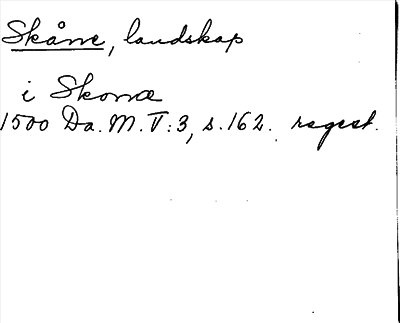 Skåne, landskap
i Skonæ
1500 Da. M. V:3, s. 162. regest.